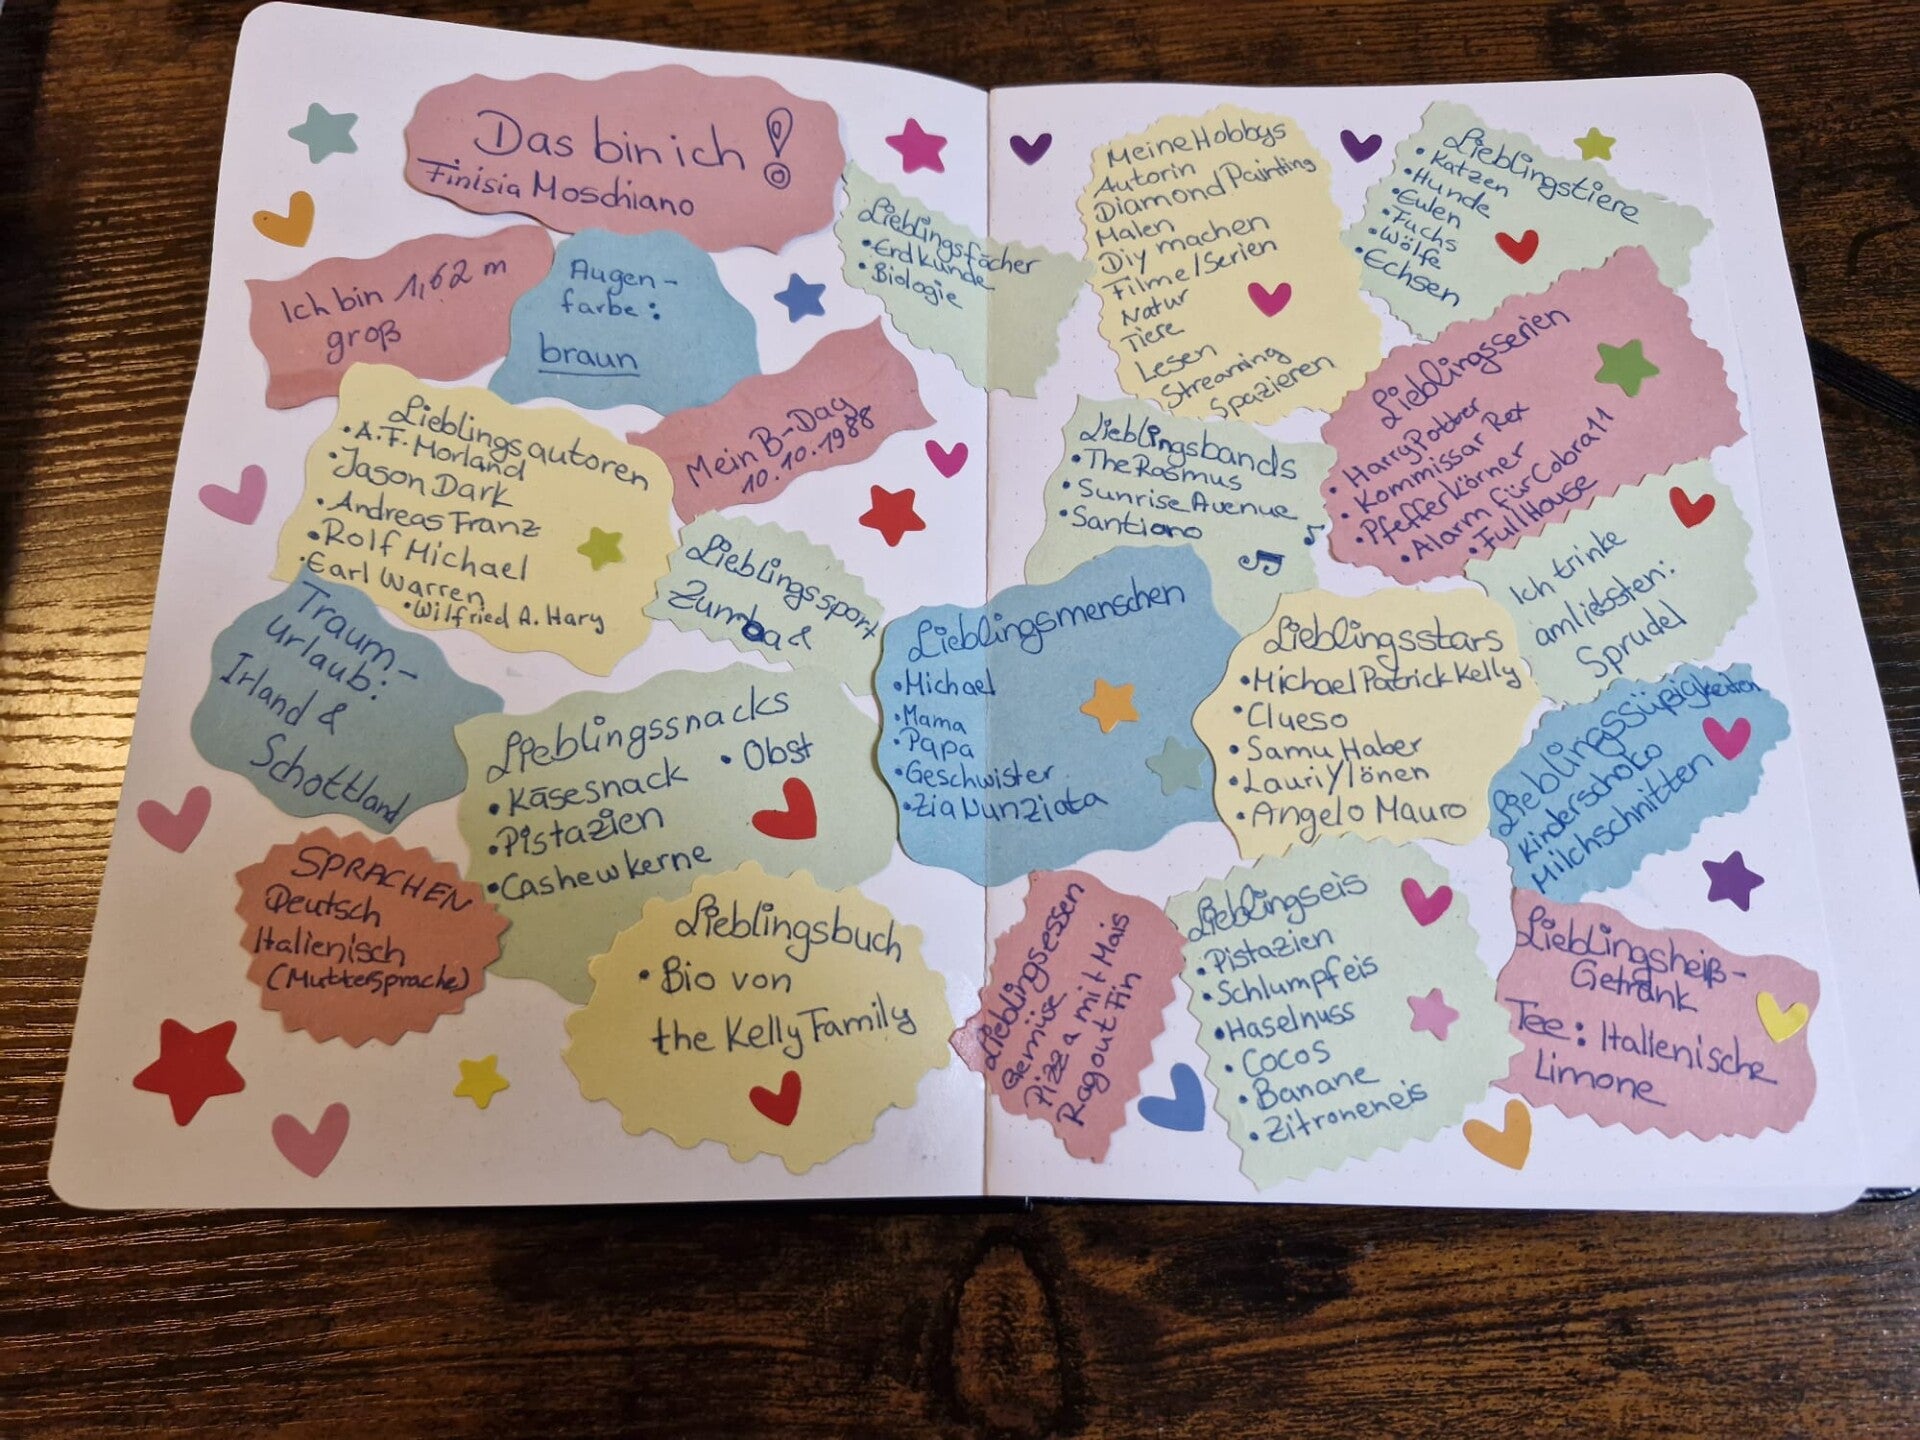 Das bin ich!
Finisia Moschiano
Ich bin 1,62 m
groß
Augen-
farbe:
braun
Lieblingsfächer
• Erdkunde
• Biologie
Mein B-Day
10.10.1988
Lieblingsautoren
• A.F. Morland
• Jason Dark
• Andreas Franz
• Rolf Michael
• Earl Warren
• Wilfried A. Hary
Lieblingssport
Zumba &
Traum-
urlaub:
Irland &
Schottland
Lieblingssnacks
• Käsesnack
• Obst
• Pistazien
• Cashewkerne
SPRACHEN
Deutsch
Italienisch
(Muttersprache)
Lieblingsbuch
• Bio von
the Kelly Family
Meine Hobbys
Autorin
Diamond Painting
Malen
Diy machen
Filme/Serien
Natur
Tiere
Lesen
Streaming
Spazieren
Lieblingstiere
• Katzen
• Hunde
• Eulen
• Fuchs
• Wölfe
• Echsen
Lieblingsserien
• Harry Potter
• Kommissar Rex
• Pfefferkörner
• Alarm für Cobra 11
• Full House
Lieblingsbands
• The Rasmus
• Sunrise Avenue
• Santiano
Ich trinke
am liebsten:
Sprudel
Lieblingsmenschen
• Michael
• Mama
• Papa
• Geschwister
• Zia Nunziata
Lieblingsstars
• Michael Patrick Kelly
• Clueso
• Samu Haber
• Lauri Ylönen
• Angelo Mauro
Lieblingssüßigkeiten
Kinderschoko
Milchschnitten
Lieblingsessen
Gemüse
Pizza mit Mais
Ragout Fin
Lieblingseis
• Pistazien
• Schlumpfeis
• Haselnuss
• Cocos
• Banane
• Zitroneneis
Lieblingsheiß-
Getränk
Tee: Italienische
Limone